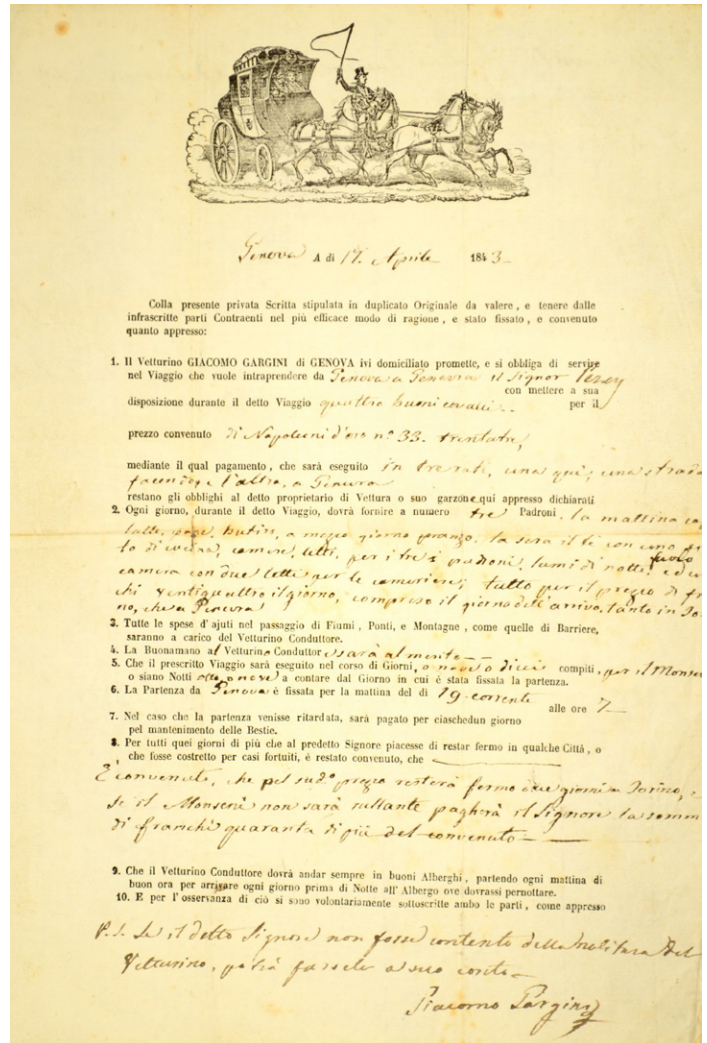 Genova A di 17. Aprile 1843
Colla presente privata Scritta stipulata in duplicato Originale da valere , e tenere dalle
infrascritte parti Contraenti nel più efficace modo di ragione , e stato fissato , e convenuto
quanto appresso:
1. Il Vetturino GIACOMO GARGINI di GENOVA ivi domiciliato promette, e si obbliga di servire
nel Viaggio che vuole intraprendere da Genova a Genevra il Signor
con mettere a sua
disposizione durante il detto Viaggio quattro buoni cavalli per il
prezzo convenuto di Napoleoni d'oro n° 33. trentatre,
mediante il qual pagamento , che sarà eseguito in tre rate, una qui, una strada
facendo, e l'altra, a Genevra
restano gli obblighi al detto proprietario di Vettura o suo garzone qui appresso dichiarati
2. Ogni giorno, durante il detto Viaggio, dovrà fornire a numero tre Padroni. la mattina
latte, pane, butiro, a mezzo giorno pranzo. la sera il tè con uno
to di cucina, camere, letti, per i tre padroni, lumi di notte, fuoco
camera con due letti per le cameriere; tutto per il prezzo di
chi ventiquattro il giorno, compreso il giorno dell'arrivo, tanto in
no, che a Genevra
3. Tutte le spese d'ajuti nel passaggio di Fiumi , Ponti, e Montagne , come quelle di Barriere,
saranno a carico del Vetturino Conduttore.
4. La Buonamano al Vetturino Conduttor
5. Che il prescritto Viaggio sarà eseguito nel corso di Giorni, o nove o dieci compiti, per il
o siano Notti otto o nove a contare dal Giorno in cui é stata fissata la partenza.
6. La Partenza da Genova é fissata per la mattina del di 19. corrente
alle ore 7
7. Nel caso che la partenza venisse ritardata, sarà pagato per ciaschedun giorno
pel mantenimento delle Bestie.
8. Per tutti quei giorni di più che al predetto Signore piacesse di restar fermo in qualche Città , o
che fosse costretto per casi fortuiti, é restato convenuto, che
È convenuto, che pel sud° prezzo resterà fermo due giorni a Torino,
se il non sarà pagherà il Signore la
di franchi quaranta di più del convenuto
9. Che il Vetturino Conduttore dovrà andar sempre in buoni Alberghi , partendo ogni mattina di
buon ora per arrivare ogni giorno prima di Notte all' Albergo ove dovrassi pernottare.
10. E per l' osservanza di ciò si sono volontariamente sottoscritte ambo le parti , come appresso
P.S. Se il detto Signore non fosse contento della del
Vetturino, potrà farselo a suo conto
Giacomo Gargini